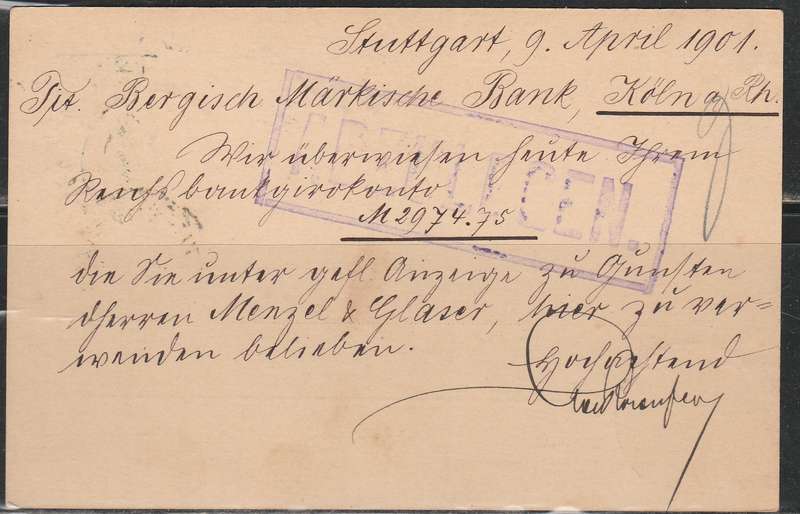 Stuttgart, 9. April 1901.
Tit. Bergisch Märkische Bank, Köln a/Rh.
Wir überwiesen heute Ihrem
Reichsbankgirokonto
M 2974.75
die Sie unter gefl. Anzeige zu Gunsten
der Herren Menzel & Glaser, hier zu ver=
wenden belieben.
Hochachtend